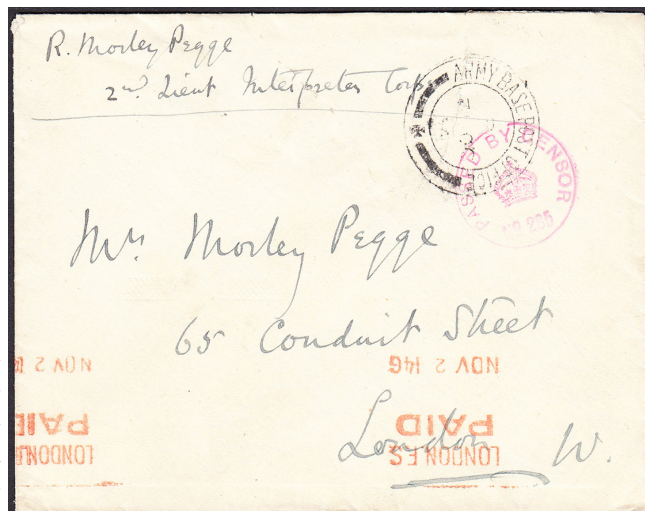 R. Morley Pegge
2nd Lieut Interpreter Corps
ARMY BASE POST OFFICE
PASSED BY CENSOR
No 295
Mrs Morley Pegge
65 Conduit Street
London W.
LONDON F.S.
PAID
NOV 2 14
LONDON
PAID
NOV 2